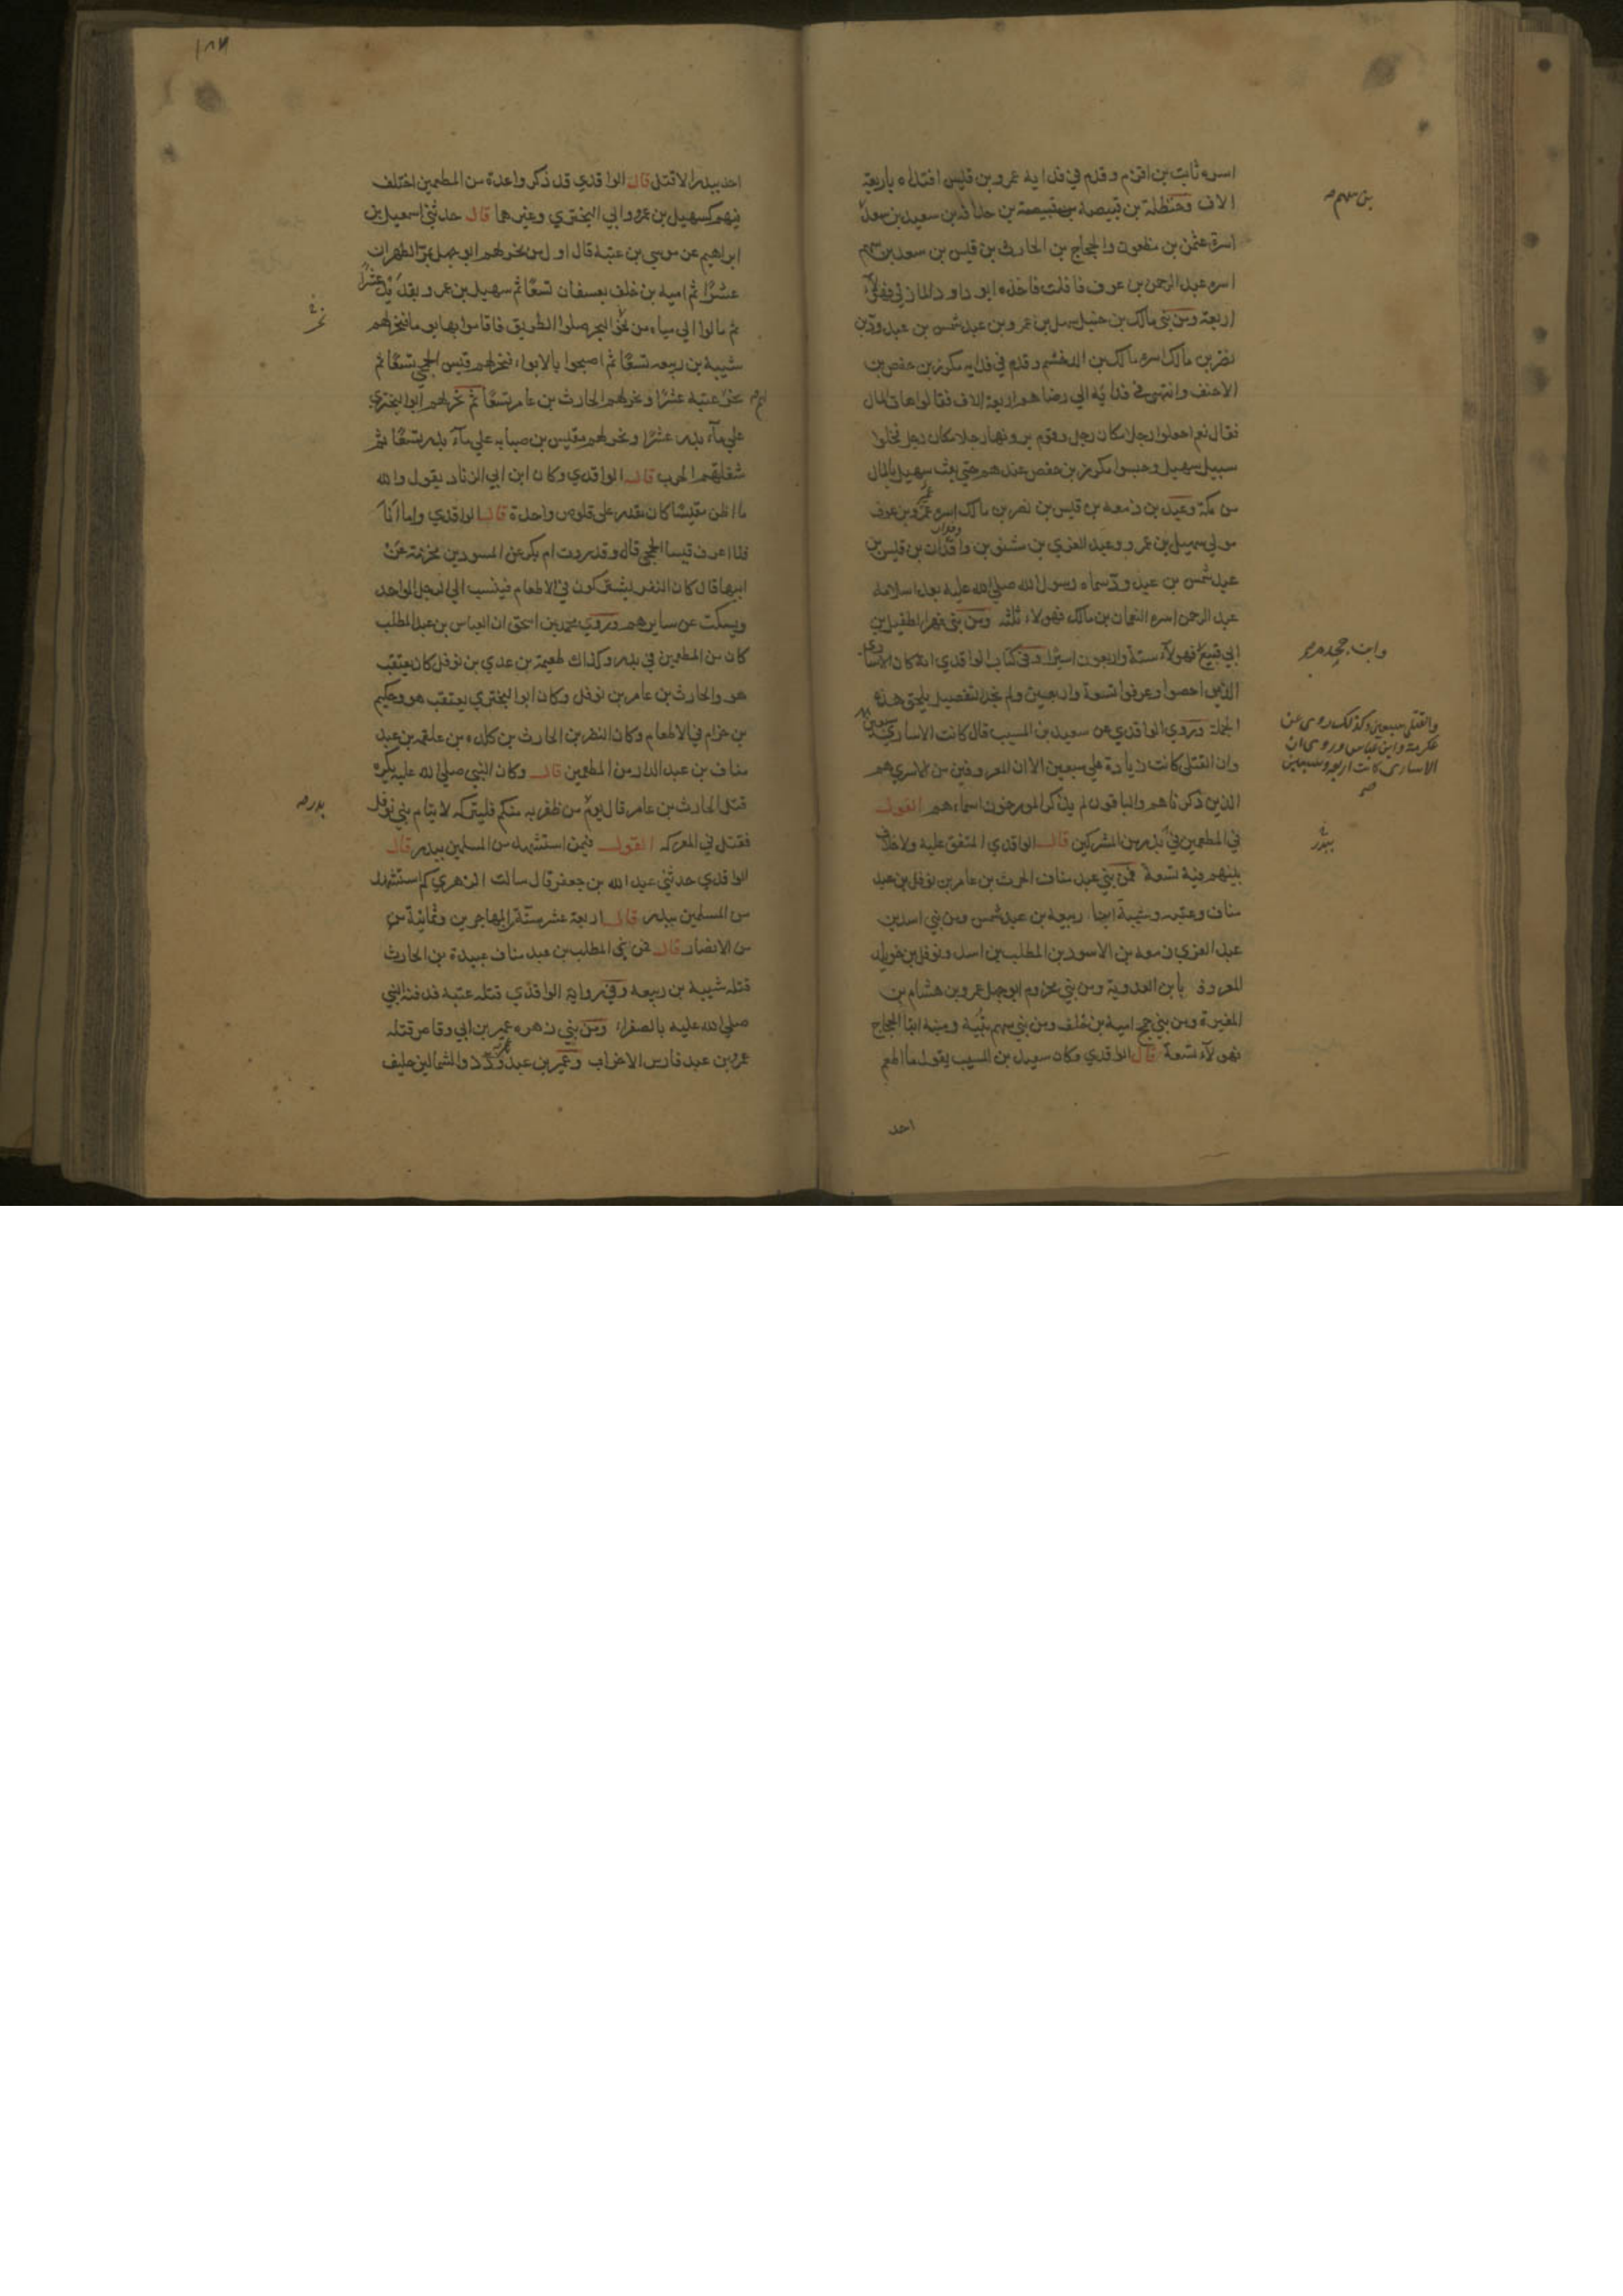 اسره ثابت بن اقزم وقدم في فدايه عمرو بن قيس افتداه باربعة
الاف وحنظلة بن قبيصة بن حذافه بن سعيد بن سعد
بن سهم صح
اسره عثمن بن مظعون والحجاج بن الحارث بن قيس بن سعد بن سهم
اسره عبد الرحمن بن عوف فافلت فاخذه ابو داود المازني فهولآء
اربعة ومن بني مالك بن حسل سهيل بن عمرو بن عبد شمس بن عبد ود بن
نضر بن مالك اسره مالك بن الدخشم وقدم في فدايه مكرز بن حفص بن
الاخنف وانتهى في فدايه الي رضاهم اربعة الاف فقالوا هات المال
فقال نعم اجعلوا رجلا مكان رجل وقوم يرونها رجلا مكان رجل فخلوا
سبيل سهيل وحبسوا مكرز بن حفص عندهم حتي بعث سهيل بالمال
من مكة وعبد بن زمعه بن قيس بن نضر بن مالك اسره عمرو بن عوف
مولي سهيل بن عمرو وعبد العزي بن مشنو بن وقدان بن قيس بن
عبد شمس بن عبد ود سماه رسول الله صلي الله عليه بعد اسلامه
عبد الرحمن اسره النعمان بن مالك فهولاء ثلثه ومن بني فهر الطفيل بن
ابي قنيع فهولآء ستة واربعون اسيرا وفي كتاب الواقدي انه كان الاساري
وابن جحدم صح
الذين احصوا وعرفوا تسعة واربعين ولم نجد التفصيل يلحق هذه
الجملة وروي الواقدي عن سعيد بن المسيب قال كانت الاساري سبعين
والقتلى سبعين وكذلك روى عن
عكرمة وابن عباس وروى ان
الاسارى كانت اربعة وسبعين
صح
وان القتلي كانت زيادة علي سبعين الا ان المعروفين من الاسري هم
الذين ذكرناهم والباقون لم يذكر المورخون اسماءهم القول
في المطعمين في بدر من المشركين قال الواقدي المتفق عليه ولا خلاف
بينهم فيه تسعة فمن بني عبد مناف الحرث بن عامر بن نوفل بن عبد
مناف وعتبه وشيبة ابنا ربيعه بن عبد شمس ومن بني اسد بن
عبد العزي زمعه بن الاسود بن المطلب بن اسد ونوفل بن خويلد
المعروف بابن العدوية ومن بني مخزوم ابو جهل عمرو بن هشام بن
المغيرة ومن بني جمح امية بن خلف ومن بني سهم نبيه ومنبه ابنا الحجاج
فهولآء تسعة قال الواقدي وكان سعيد بن المسيب يقول ما اطعم
احد
احد ببدر الا قتل قال الواقدي قد ذكروا عدة من المطعمين اختلف
فيهم كسهيل بن عمرو وابي البختري وغيرهما قال حدثني اسمعيل بن
ابراهيم عن موسي بن عقبة قال اول من نحر لهم ابو جهل بمر الظهران
عشرا ثم امية بن خلف بعسفان تسعا ثم سهيل بن عمرو بقديد عشرا
ثم مالوا الي مياه من نحو البحر ضلوا الطريق فاقاموا بها يوما فنحر لهم
شيبة بن ربيعه تسعا ثم اصبحوا بالابواء فنحر لهم قيس الجمحي تسعا ثم
نحر عتبة عشرا ونحر لهم الحارث بن عامر تسعا ثم نحر لهم ابو البختري
علي مآء بدر عشرا ونحر لهم مقيس بن صبابه علي مآء بدر تسعا ثم
شغلتهم الحرب قال الواقدي وكان ابن ابي الزناد يقول والله
ما اظن مقيسا كان يقدر علي قلوص واحدة قال الواقدي واما انا
فلا اعرف قيسا الجمحي قال وقد روت ام بكر عن المسور بن مخرمة عن
ابيها قال كان النفر يشتركون في الاطعام فينسب الي الرجل الواحد
ويسكت عن سايرهم وروي محمد بن اسحق ان العباس بن عبد المطلب
كان من المطعمين في بدر وكذلك طعيمة بن عدي بن نوفل كان يعتقب
هو والحارث بن عامر بن نوفل وكان ابو البختري يعتقب هو وحكيم
بن حزام في الاطعام وكان النضر بن الحارث بن كلده بن علقمه بن عبد
مناف بن عبد الدار من المطعمين قال وكان النبي صلي الله عليه يكره
قتل الحارث بن عامر قال يوم من ظفر به منكم فليتركه لايتام بني نوفل
بدر صح
فقتل في المعركه القول فيمن استشهد من المسلمين ببدر قال
الواقدي حدثني عبد الله بن جعفر قال سالت الزهري كم استشهد
من المسلمين ببدر قال اربعة عشر ستة من المهاجرين وثمانية من
من الانصار قال فمن بني المطلب بن عبد مناف عبيدة بن الحارث
قتله شيبة بن ربيعه وفي رواية الواقدي قتله عتبة فدفنه النبي
صلي الله عليه بالصفراء ومن بني زهره عمير بن ابي وقاص قتله
عمرو بن عبد فارس الاحزاب وعمير بن عبد ود ذو الشمالين حليف